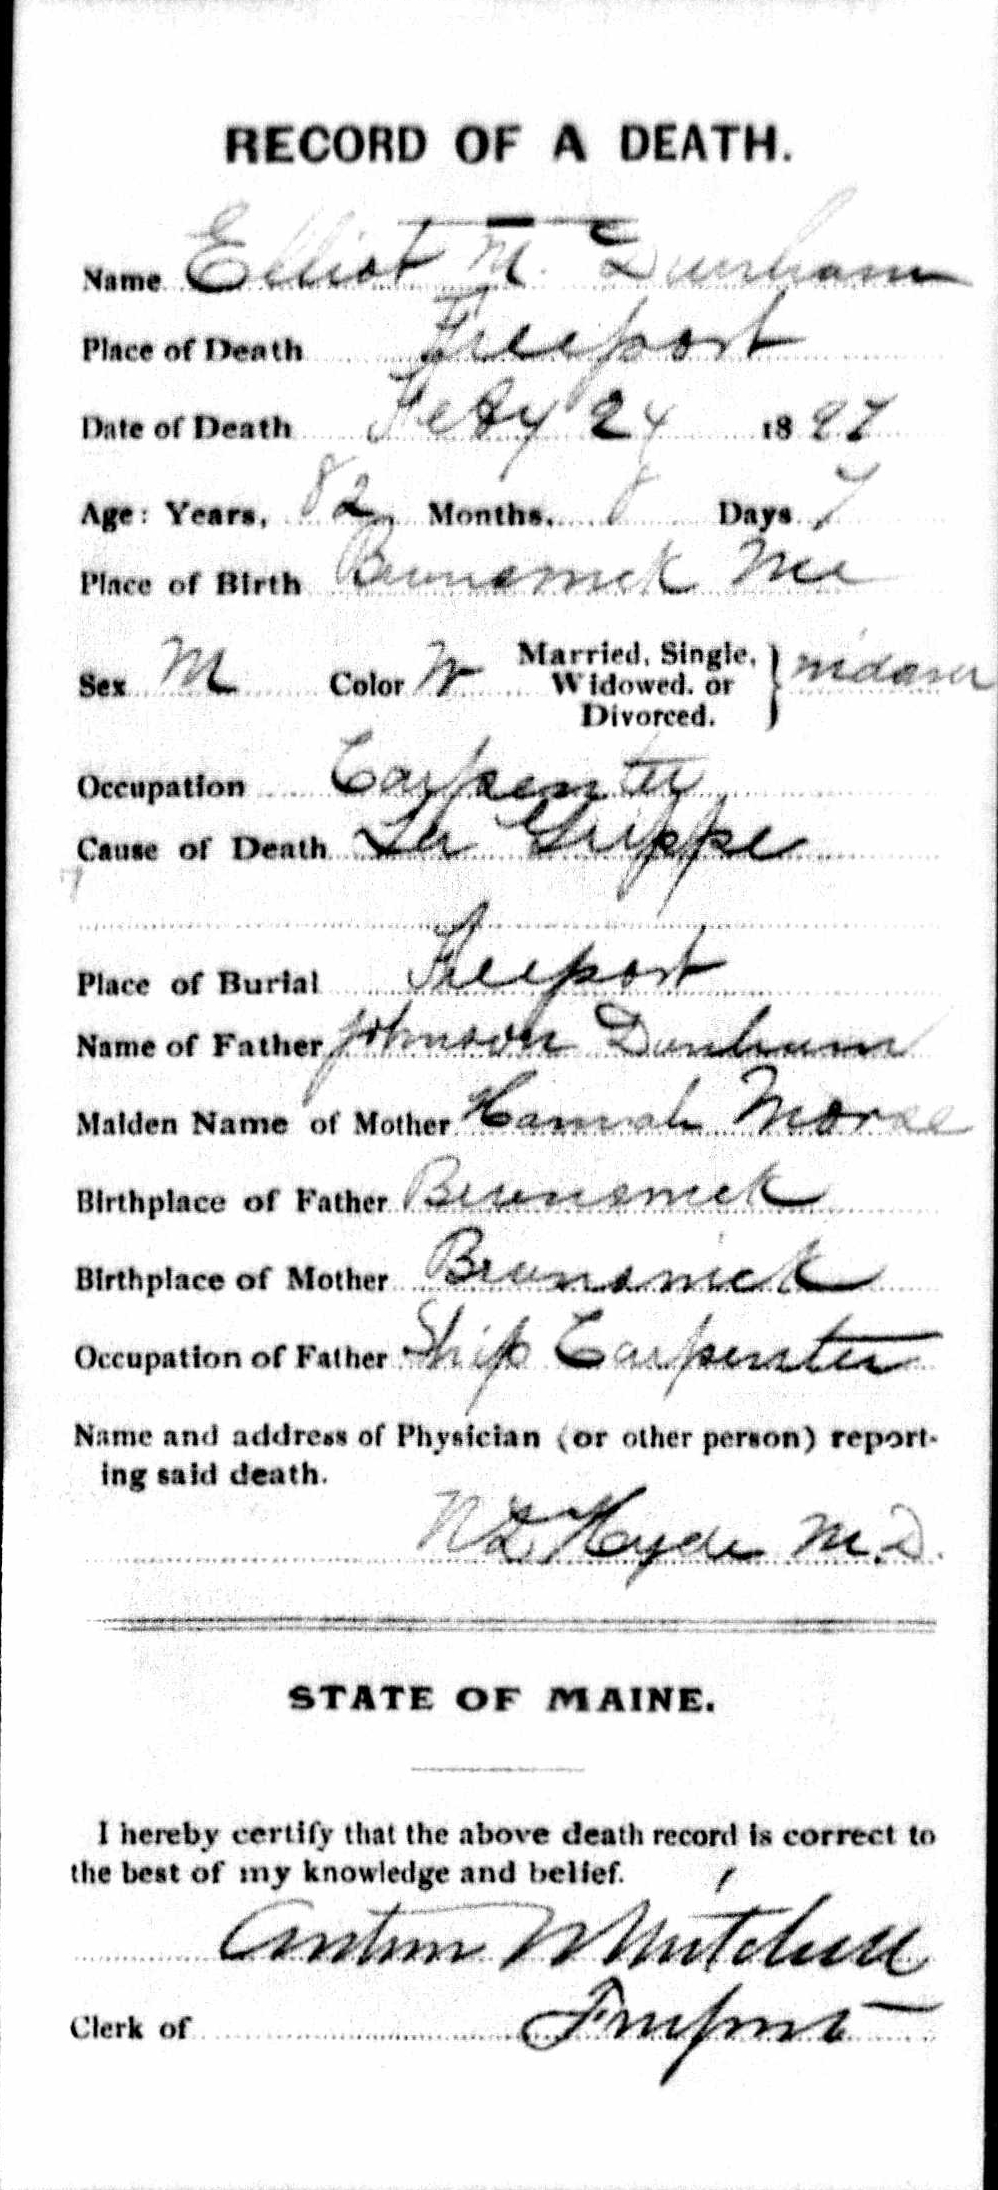 RECORD OF A DEATH.
Name Elliot M. Dunham
Place of Death Freeport
Date of Death Feby 24 1897
Age: Years, 82 Months, 8 Days 7
Place of Birth Brunswick Me
Sex M Color W Married, Single, Widowed, or Divorced. } widower
Occupation Carpenter
Cause of Death La Grippe
Place of Burial Freeport
Name of Father Johnson Dunham
Maiden Name of Mother Hannah Morse
Birthplace of Father Brunswick
Birthplace of Mother Brunswick
Occupation of Father Ship Carpenter
Name and address of Physician (or other person) report-
ing said death.
Hyde M.D.
STATE OF MAINE.
I hereby certify that the above death record is correct to
the best of my knowledge and belief.
Mitchell
Clerk of Freeport